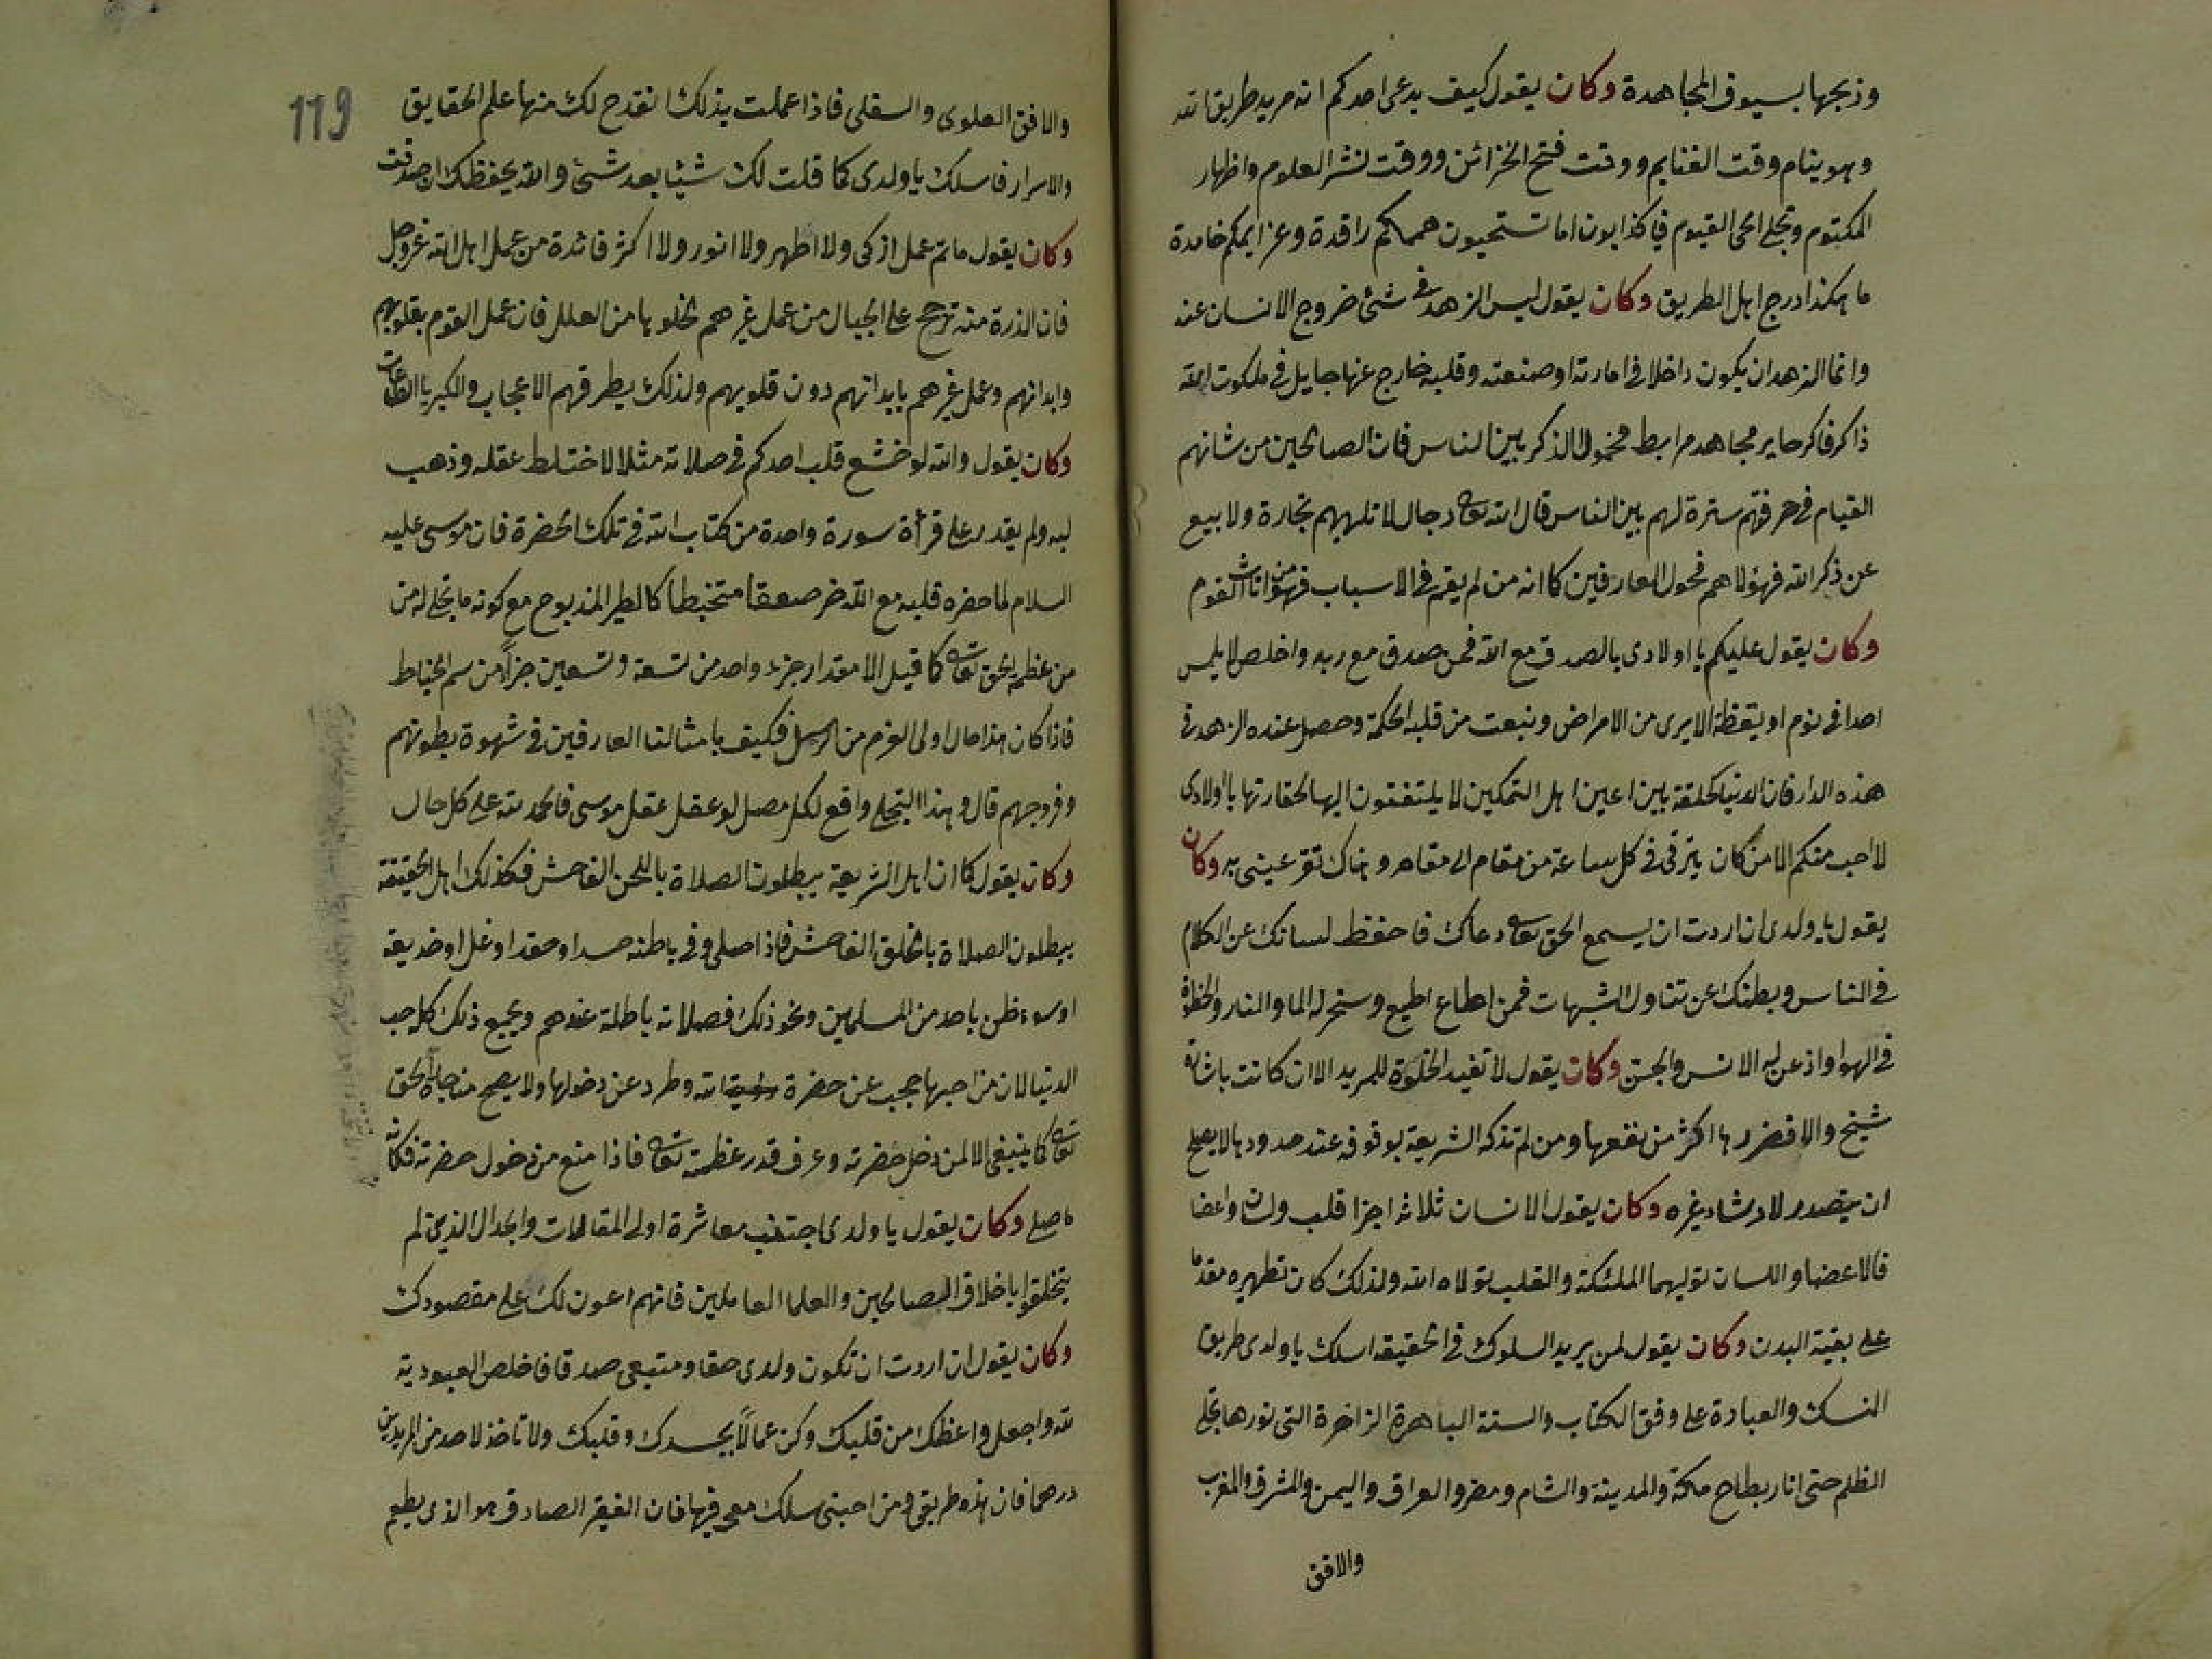 وذبحها بسيوف المجاهدة وكان يقول كيف يدعى احدكم انه مريد طريق الله
وهو ينام وقت الغنايم ووقت فتح الخزائن ووقت نشر العلوم واظهار
المكتوم وتجلى الحى القيوم فيا كذابون اما تستحيون هممكم راقدة وعزايمكم خامدة
ما هكذا درج اهل الطريق وكان يقول ليس الزهد فى شئ خروج الانسان عنه
وانما الزهد ان يكون داخلا فى امارته او صنعته وقلبه خارج عنها جايل فى ملكوت الله
ذاكر فاكر حاير مجاهد مرابط مخمول الذكر بين الناس فان الصالحين من شانهم
القيام فى حرفتهم سترة لهم بين الناس قال الله تعالى رجال لا تلهيهم تجارة ولا بيع
عن ذكر الله فهؤلا هم فحول العارفين كما انه من لم يقم فى الاسباب فهو من اناث القوم
وكان يقول عليكم يا اولادى بالصدق مع الله فمن صدق مع ربه واخلص لا يلمس
احدا فى نوم او يقظة الا يرى من الامراض ونبعت من قلبه الحكمة وحصل عنده الزهد فى
هذه الدار فان الدنيا كحلقة بين اعين اهل التمكين لا يلتفتون اليها لحقارتها يا اولادى
لا احب منكم الا من كان يترقى فى كل ساعة من مقام الى مقام وهناك تقر عينى به وكان
يقول يا ولدى ان اردت ان يسمع الحق تعالى دعاك فاحفظ لسانك عن الكلام
فى الناس وبطنك عن تناول الشبهات فمن اطاع اطيع وسخر له الما والنار والخطوة
فى الهوا واذعن له الانس والجن وكان يقول لا تفيد الخلوة للمريد الا ان كانت باشارة
شيخ والا فضررها اكثر من نفعها ومن لم تذكه الشريعة بوقوفه عند حدودها لا يصلح
ان يتصدر لارشاد غيره وكان يقول الانسان ثلاثة اجزا قلب ولسان واعضا
فالاعضا واللسان توليهما الملئكة والقلب تولاه الله ولذلك كان تطهيره مقدما
على بقية البدن وكان يقول لمن يريد السلوك فى الحقيقة اسلك يا ولدى طريق
النسك والعبادة على وفق الكتاب والسنة الباهرة الزاخرة التى نورها يجلى
الظلم حتى انار بطاح مكة والمدينة والشام ومصر والعراق واليمن والمشرق والمغرب
والافق
119
والافق العلوى والسفلى فاذا عملت بذلك انقدح لك منها علم الحقايق
والاسرار فاسلك يا ولدى كما قلت لك شيئا بعد شئ والله يحفظك ان صدقت
وكان يقول ما ثم عمل ازكى ولا اطهر ولا انور ولا اكثر فائدة من عمل اهل الله عز وجل
فان الذرة منه ترجح على الجبال من عمل غيرهم لخلوها من العلل فان عمل القوم بقلوبهم
وابدانهم وعمل غيرهم بابدانهم دون قلوبهم ولذلك يطرقهم الاعجاب والكبر بالطاعات
وكان يقول والله لو خشع قلب احدكم فى صلاته مثلا لاختلط عقله وذهب
لبه ولم يقدر على قرأة سورة واحدة من كتاب الله فى تلك الحضرة فان موسى عليه
السلام لما حضره قلبه مع الله خر صعقا متخبطا كالطير المذبوح مع كونه ما تجلى له من
من عظمة الحق تعالى كما قيل الا مقدار جزء واحد من تسعة وتسعين جزأ من سم الخياط
فاذا كان هذا حال اولى العزم من الرسل فكيف بامثالنا العارفين فى شهوة بطونهم
وفروجهم قال وهذا التجلى واقع لكل مصل لو عقل عقل موسى فالحمد لله على كل حال
وكان يقول كما ان اهل الشريعة يبطلون الصلاة باللحن الفاحش فكذلك اهل الحقيقة
يبطلون الصلاة بالخلق الفاحش فاذا صلى وفى باطنه حسد او حقد او غل او خديعة
او سوء ظن باحد من المسلمين ونحو ذلك فصلاته باطلة عندهم وجميع ذلك كله حب
الدنيا لان من احبها حجب عن حضرة الله وطرد عن دخولها ولا يصح مناجاة الحق
تعالى كما ينبغى الا لمن دخل حضرته وعرف قدر عظمة تعالى فاذا منع من دخول حضرته فكانه
ما صلى وكان يقول يا ولدى اجتنب معاشرة اولى المقالات والجدال الذين لم
يتخلقوا باخلاق الصالحين والعلما العاملين فانهم اعون لك على مقصودك
وكان يقول ان اردت ان تكون ولدى حقا ومتبعى صدقا فاخلص العبودية
لله واجعل واعظك من قلبك وكن عمالا بجسدك وقلبك ولا تاخذ لاحد من المريدين
درهما فان هذه طريقى ومن احبنى سلك معى فيها فان الفقير الصادق هو الذى يطعم